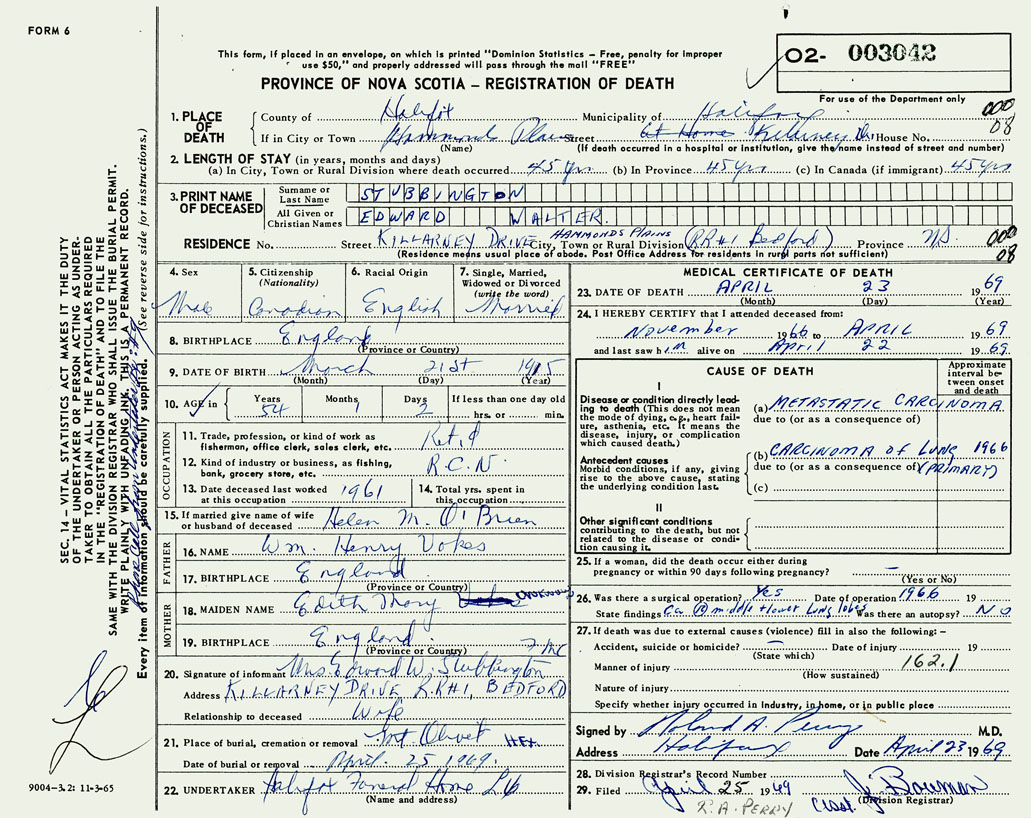 FORM 6
This form, if placed in an envelope, on which is printed "Dominion Statistics – Free, penalty for improper
use $50," and properly addressed will pass through the mail "FREE"
O2- 003042
For use of the Department only
PROVINCE OF NOVA SCOTIA – REGISTRATION OF DEATH
1. PLACE OF DEATH
County of Halifax Municipality of Halifax 000
If in City or Town Hammonds Plains Street At Home Killarney Dr. House No. 08
(Name) (If death occurred in a hospital or institution, give the name instead of street and number)
2. LENGTH OF STAY (in years, months and days)
(a) In City, Town or Rural Division where death occurred 45 yrs (b) In Province 45 yrs (c) In Canada (if immigrant) 45 yrs
3. PRINT NAME OF DECEASED
Surname or Last Name STUBBINGTON
All Given or Christian Names EDWARD WALTER.
RESIDENCE No. Street KILLARNEY DRIVE City, Town or Rural Division HAMMONDS PLAINS (RR#1 Bedford) Province N.S. 000
(Residence means usual place of abode. Post Office Address for residents in rural parts not sufficient) 08
4. Sex Male
5. Citizenship (Nationality) Canadian
6. Racial Origin English
7. Single, Married, Widowed or Divorced (write the word) Married
8. BIRTHPLACE England
(Province or Country)
9. DATE OF BIRTH March 21st 1915
(Month) (Day) (Year)
10. AGE in Years 54 Months 1 Days 2 If less than one day old hrs. or min.
OCCUPATION
11. Trade, profession, or kind of work as fisherman, office clerk, sales clerk, etc. Ret'd
12. Kind of industry or business, as fishing, bank, grocery store, etc. R.C.N.
13. Date deceased last worked at this occupation 1961
14. Total yrs. spent in this occupation
15. If married give name of wife or husband of deceased Helen M. O'Brien
FATHER
16. NAME Wm. Henry Vokes
17. BIRTHPLACE England
(Province or Country)
MOTHER
18. MAIDEN NAME Edith Mary unknown
19. BIRTHPLACE England
(Province or Country)
20. Signature of informant Mrs. Edward W. Stubbington
Address KILLARNEY DRIVE R.R#1, BEDFORD
Relationship to deceased Wife
21. Place of burial, cremation or removal Mt. Olivet HFX.
Date of burial or removal April 25 1969.
22. UNDERTAKER Halifax Funeral Home Ltd
(Name and address)
MEDICAL CERTIFICATE OF DEATH
23. DATE OF DEATH APRIL 23 1969
(Month) (Day) (Year)
24. I HEREBY CERTIFY that I attended deceased from:
November 1966 to APRIL 1969
and last saw him alive on April 22 1969.
CAUSE OF DEATH
Approximate interval between onset and death
I
Disease or condition directly leading to death (This does not mean the mode of dying, e.g., heart failure, asthenia, etc. It means the disease, injury, or complication which caused death.)
(a) METASTATIC CARCINOMA.
due to (or as a consequence of)
Antecedent causes
Morbid conditions, if any, giving rise to the above cause, stating the underlying condition last.
(b) CARCINOMA OF LUNG 1966
due to (or as a consequence of) (PRIMARY)
(c)
II
Other significant conditions contributing to the death, but not related to the disease or condition causing it.
25. If a woman, did the death occur either during pregnancy or within 90 days following pregnancy? –
(Yes or No)
26. Was there a surgical operation? Yes Date of operation 1966 19
State findings Ca. R middle + lower Lung lobes Was there an autopsy? No
27. If death was due to external causes (violence) fill in also the following: –
Accident, suicide or homicide? – Date of injury 19
(State which)
Manner of injury 162.1
(How sustained)
Nature of injury
Specify whether injury occurred in Industry, in home, or in public place
Signed by Roland A. Perry M.D.
Address Halifax Date April 23 1969
28. Division Registrar's Record Number
29. Filed April 25 1969 J. Bowman
(Division Registrar)
R. A. PERRY
SEC. 14 – VITAL STATISTICS ACT MAKES IT THE DUTY
OF THE UNDERTAKER OR PERSON ACTING AS UNDER-
TAKER TO OBTAIN ALL THE PARTICULARS REQUIRED
IN THE "REGISTRATION OF DEATH" AND FILE THE
SAME WITH THE DIVISION REGISTRAR WHO SHALL ISSUE THE BURIAL PERMIT.
WRITE PLAINLY WITH UNFADING INK. THIS IS A PERMANENT RECORD.
Every item of information should be carefully supplied. (See reverse side for instructions.)
9004-3.2: 11-3-65